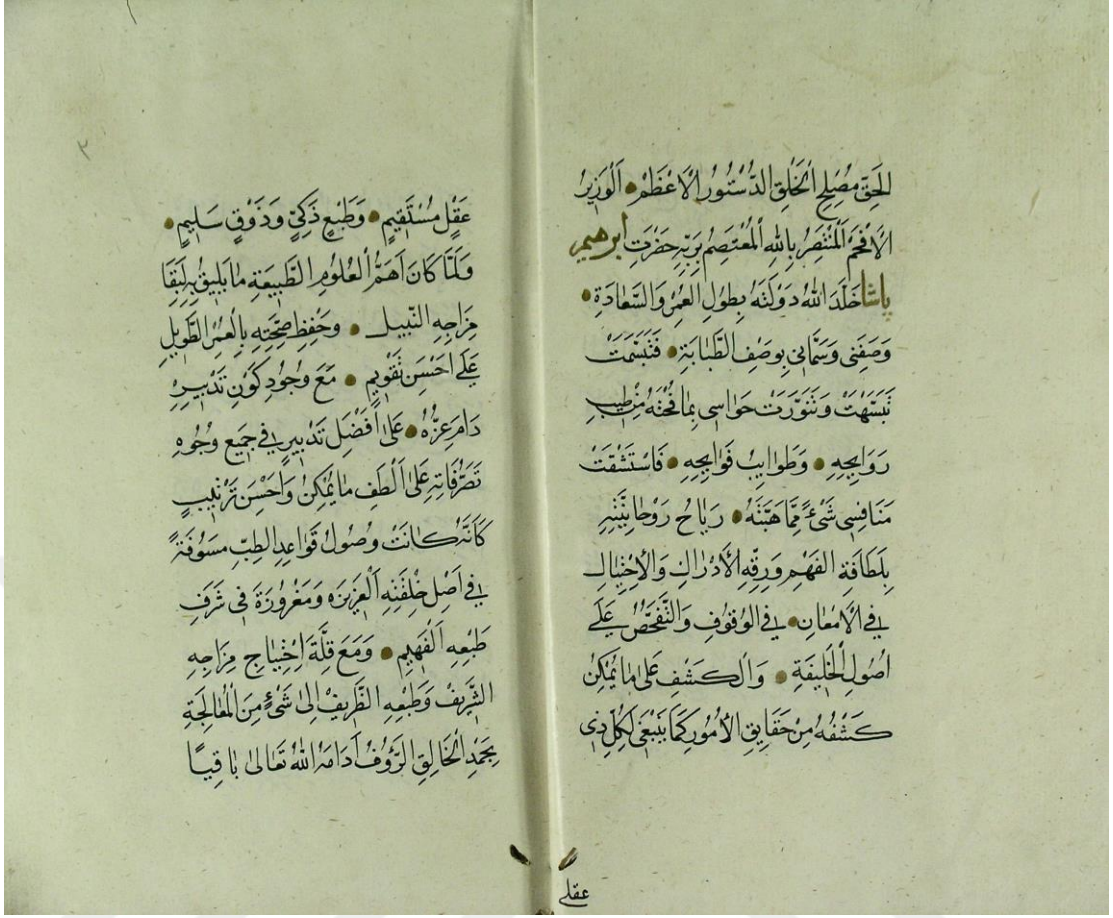 الحَقِّ مُصْلِحِ الخَلْقِ الدُّسْتُورُ الاَعْظَمْ • اَلْوَزِيرُ
الاَفْخَمُ اَلْمُنْتَصِرُ بِاللهِ اَلْمُعْتَصِمُ بِرَبِّهِ حَضْرَتِ اِبْرٰهيمر
پاشا خَلَّدَ اللهُ دَوْلَتَهُ بِطُولِ العُمْرِ وَالسَّعَادَةِ •
وَصَفَنِى وَسَمَّانِى بِوَصْفِ الطَّبَابَةِ • فَتَبَسَّمَتْ
وَتَنَوَّرَتْ حَوَاسِى بِمَا مِنْ طِيبِ
رَوَايِحِهِ • وَطَوَايِبْ فَوَايِحِهِ • فَاسْتَنْشَقَتْ
مَنَافِسِى شَىْءً مِمَّا هَبَّتَهُ • رِيَاحُ رَوْحَانِيَّتِهِ
بِلَطَافَةِ الفَهْمِ وَرِقَّةِ الاَدْرَاكِ وَالاِخْتِيَالِ
فِى الاَمْعَانِ • فِى الوُقُوفِ وَالتَّفَحُّصِ عَلَى
اُصُولِ الْخَلِيفَةِ • وَالْكَشْفِ عَلَى مَا يُمْكِنُ
كَشْفُهُ مِنْ حَقَايِقِ الاُمُورِ كَمَا يَنْبَغِى لِكُلِّ ذِى
عقلى
٣
عَقْلٍ مُسْتَقِيمٍ • وَطَبْعٍ ذَكِىٍّ وَذَوْقٍ سَلِيمٍ •
وَلَمَّا كَانَ اَهَمُّ الْعُلُومِ الطَّبِيعَةِ مَا يَلِيقُ بِهِ لِبَقَا
مِزَاجِهِ النَّبِيل • وَحِفْظِ صِحَّتِهِ بِالْعُمْرِ الطَّوِيلِ
عَلَى اَحْسَنِ تَقْوِيمٍ • مَعَ وُجُودِ كَوْنِ تَدْبِيرِهِ
دَامَ عِزُّهُ • عَلَى اَفْضَلِ تَدْبِيرٍ فِى جَمِيعِ وُجُوهِ
تَصَرُّفَاتِهِ عَلَى اَلْطَفِ مَا يُمْكِنُ وَاَحْسَنِ تَرْتِيبٍ
كَاَنَّهُ كَانَتْ وُصُولُ قَوَاعِدِ الطِّبِّ مَسُوقَةً
فِى اَصْلِ خِلْقَتِهِ اَلْعَزِيزَه وَمَغْرُوزَةً فِى شَرَفِ
طَبْعِهِ اَلْفَهِيمِ • وَمَعَ قِلَّةِ اِحْتِيَاجِ مِزَاجِهِ
الشَّرِيفْ وَطَبْعِهِ الظَّرِيفْ اِلَى شَىْءٍ مِنَ الْمُعَالَجَةِ
بِحَمْدِ الخَالِقِ الرَّؤُفُ اَدَامَهُ اللهُ تَعَالَى بَاقِيًا